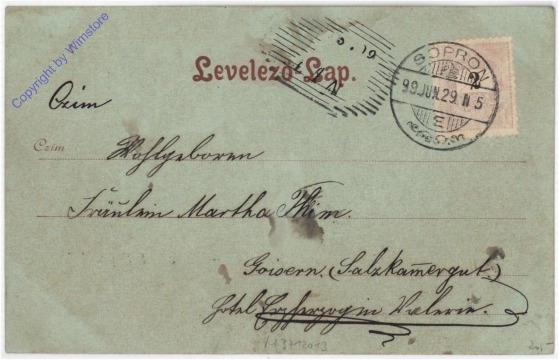 Copyright by Wimstore
Levelező-Lap.
SOPRON
99 JUN. 29. N 5
2
Czim
Czim
Wohlgeboren
Fräulein Martha Thim.
Goisern. (Salzkammergut.)
Hotel Erzherzogin Valerie.
20,-